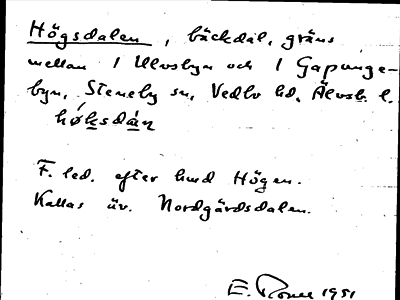 Högsdalen, bäckdal, gräns
mellan 1 Ulvsbyn och 1 Gapunge-
byn, Steneby sn, Vedbo hd, Älvsb. l.
hǿksdàn
F. led. efter hmd Högen.
Kallas äv. Nordgårdsdalen.
E. 1951